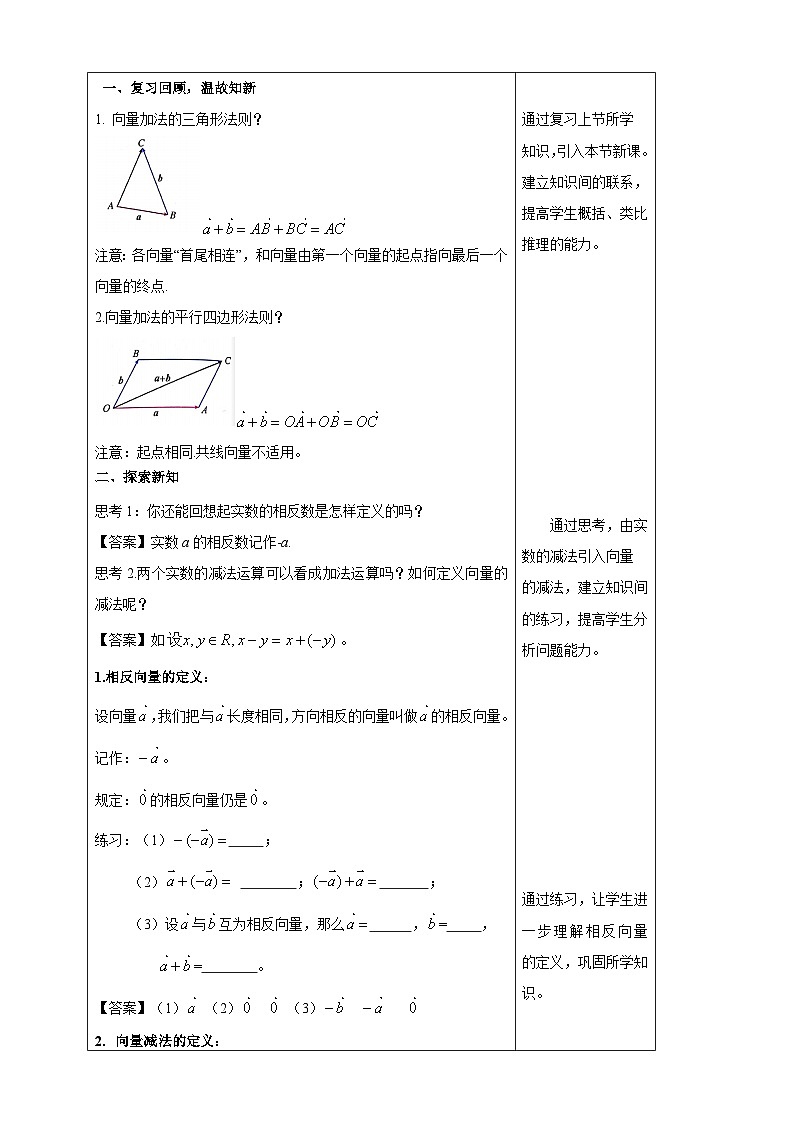 一、复习回顾，温故知新
1. 向量加法的三角形法则？
C
b
A
a
B
a+b=AB+BC=AC
注意：各向量“首尾相连”，和向量由第一个向量的起点指向最后一个
向量的终点.
2.向量加法的平行四边形法则？
B
C
b
a+b
O
a
A
a+b=OA+OB=OC
注意：起点相同.共线向量不适用。
二、探索新知
思考1：你还能回想起实数的相反数是怎样定义的吗？
【答案】实数a的相反数记作-a.
思考2.两个实数的减法运算可以看成加法运算吗？如何定义向量的
减法呢？
【答案】如设x, y∈R, x−y=x+(−y)。
1.相反向量的定义：
设向量a,我们把与a长度相同,方向相反的向量叫做a的相反向量。
记作：−a。
规定：0的相反向量仍是0。
练习：（1）−(−a)=_____；
（2）a+(−a)= ________；(−a)+a=_______；
（3）设a与b互为相反向量，那么a=______，b=_____，
a+b=________。
【答案】（1）a （2）0 0 （3）−b −a 0
2. 向量减法的定义：
通过复习上节所学
知识,引入本节新课。
建立知识间的联系，
提高学生概括、类比
推理的能力。
通过思考，由实
数的减法引入向量
的减法，建立知识间
的练习，提高学生分
析问题能力。
通过练习，让学生进
一步理解相反向量
的定义，巩固所学知
识。